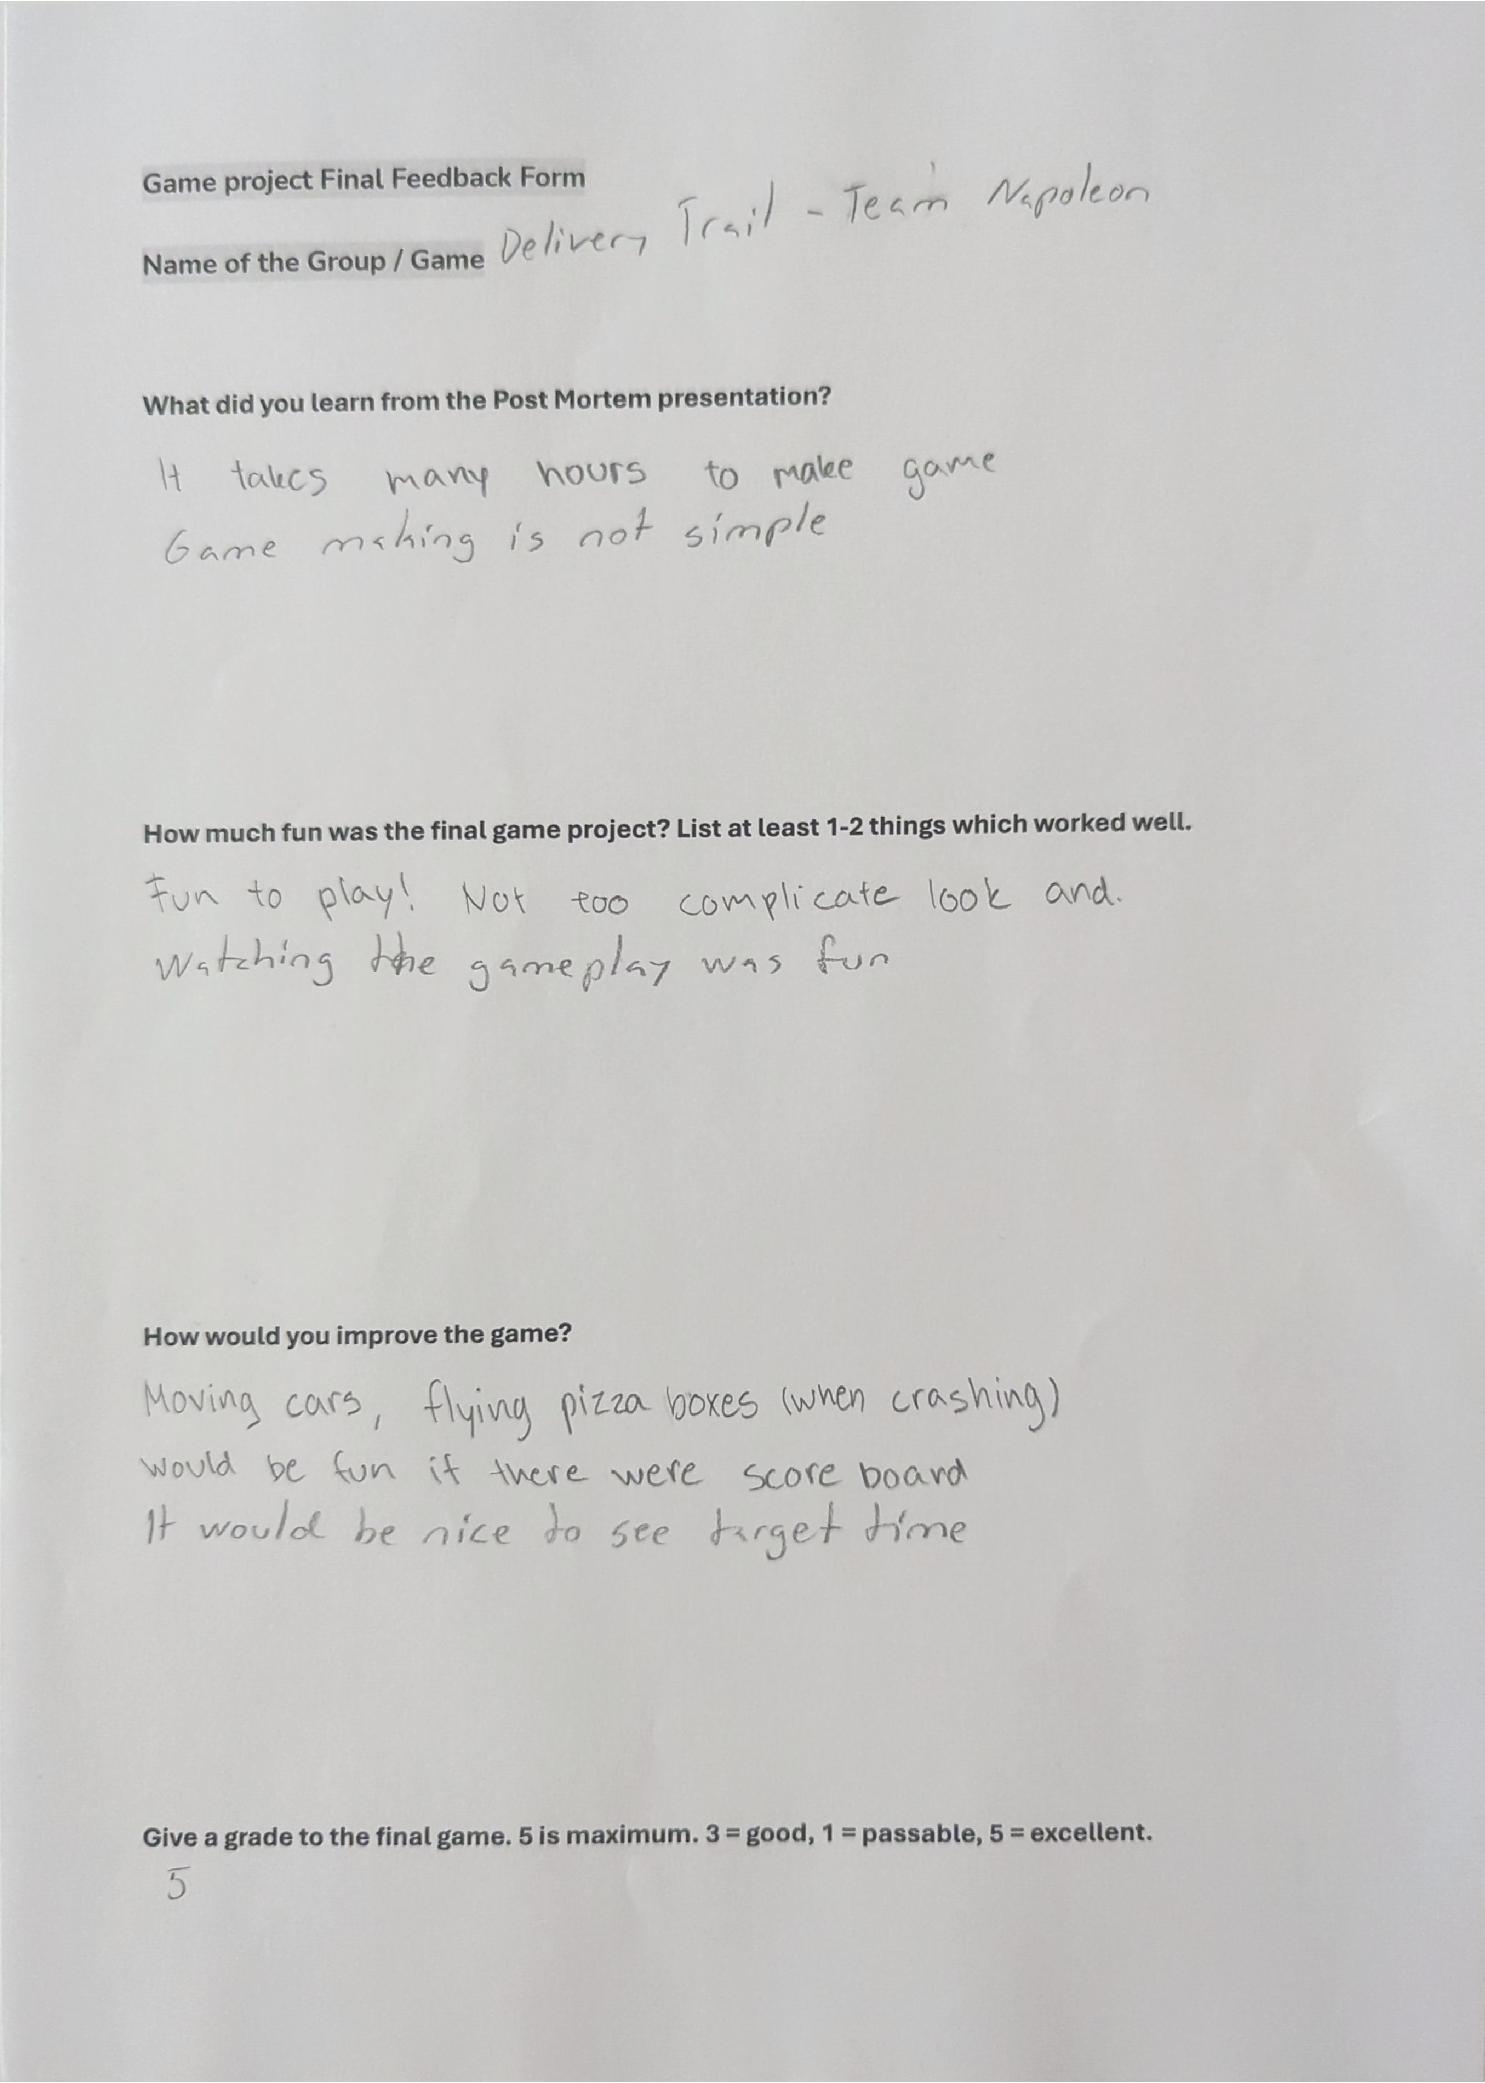 Game project Final Feedback Form
Name of the Group / Game Delivery Trail - Team Napoleon
What did you learn from the Post Mortem presentation?
It takes many hours to make game
Game making is not simple
How much fun was the final game project? List at least 1-2 things which worked well.
Fun to play! Not too complicate look and.
Watching the gameplay was fun
How would you improve the game?
Moving cars, flying pizza boxes (when crashing)
would be fun if there were score board
It would be nice to see target time
Give a grade to the final game. 5 is maximum. 3 = good, 1 = passable, 5 = excellent.
5